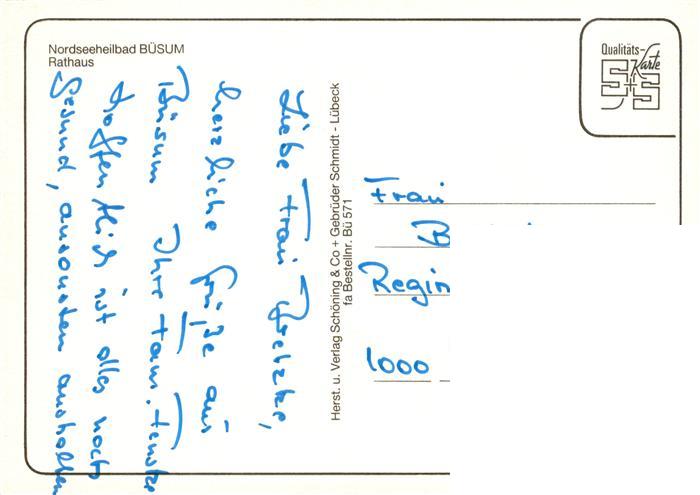 Nordseeheilbad BÜSUM
Rathaus
Qualitäts-
Karte
S+S
Liebe Frau Bretzke,
herzliche Grüße aus
Büsum Ihre Fam.
hoffentlich ist alles noch
Gesund, ansonsten aushalten
Herst. u. Verlag Schöning & Co + Gebrüder Schmidt - Lübeck
fa Bestellnr. Bü 571
Frau
B
Regin
1000